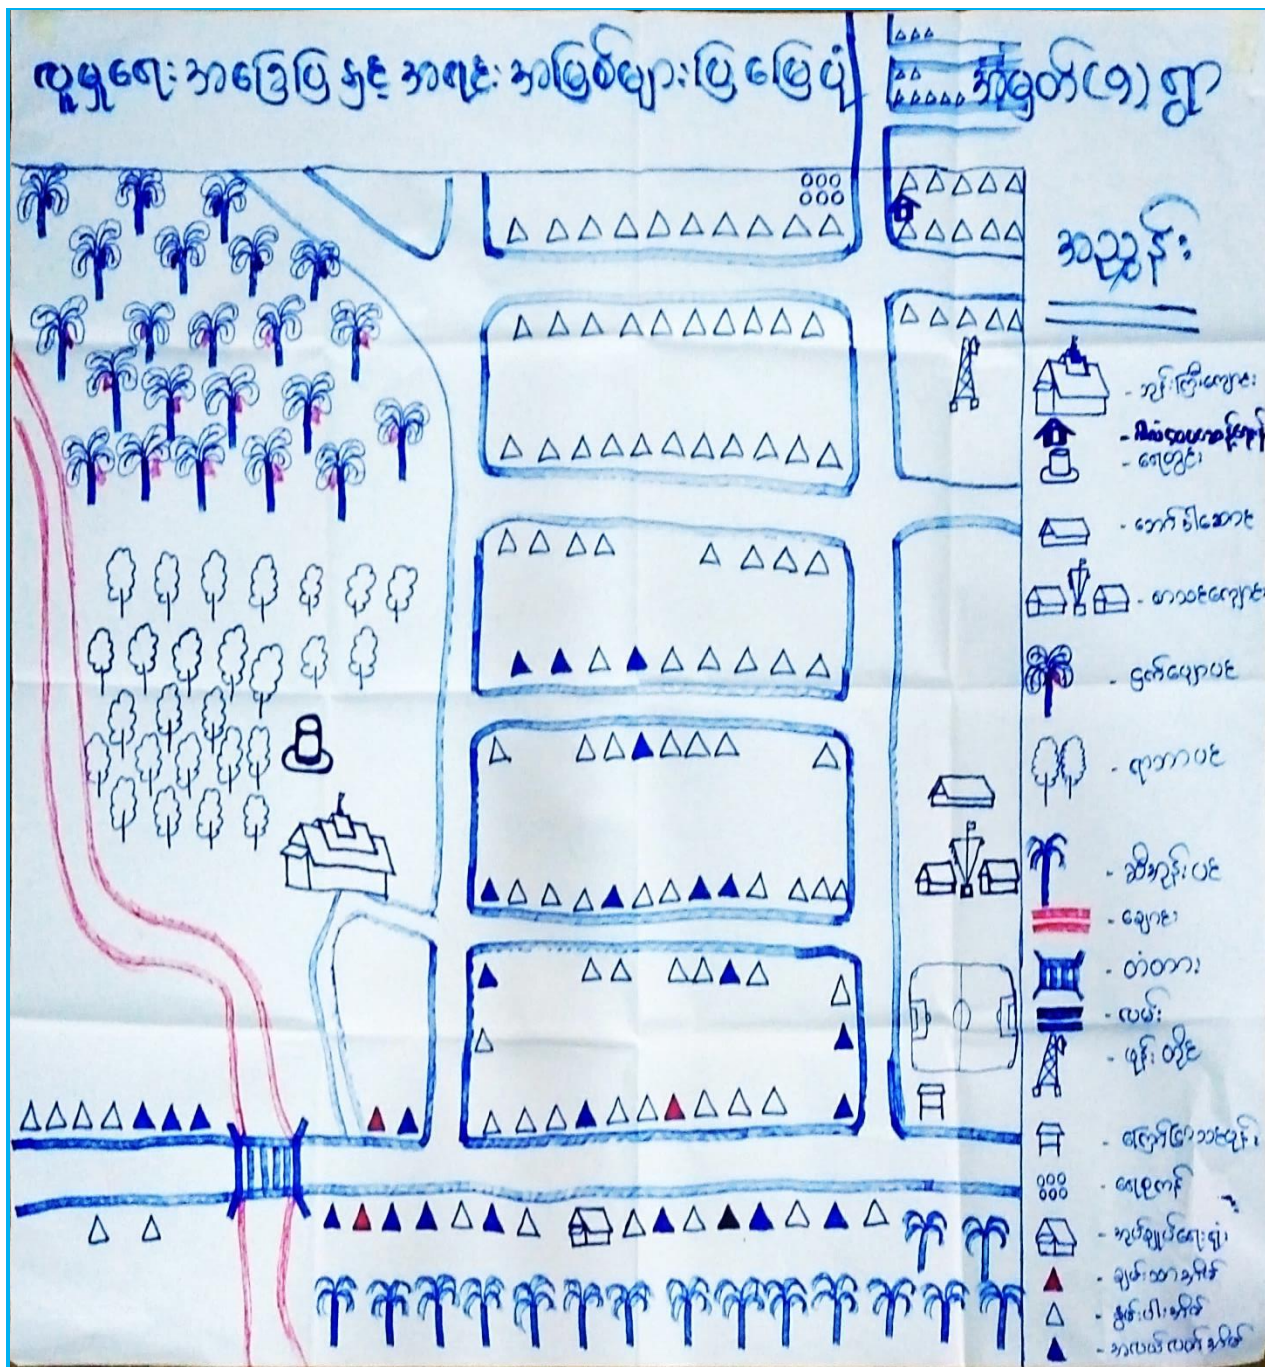 လူမှုရေးအခြေပြနှင့် အရင်းအမြစ်များပြမြေပုံ အမှတ်(၁)ရွာ
အညွှန်း
- ဘုန်းကြီးကျောင်း
- ရေတွင်း
- ဘော်ဒါဆောင်
- စာသင်ကျောင်း
- ငှက်ပျောပင်
- ရာဘာပင်
- ဆီအုန်းပင်
- ချောင်း
- တံတား
- လမ်း
- ဖုန်းတိုင်
- ကြော်ငြာသင်ပုန်း
- ရေစုကန်
- အုပ်ချုပ်ရေးရုံး
- ချမ်းသာအိမ်
- နွမ်းပါးအိမ်
- အလယ်လတ်အိမ်